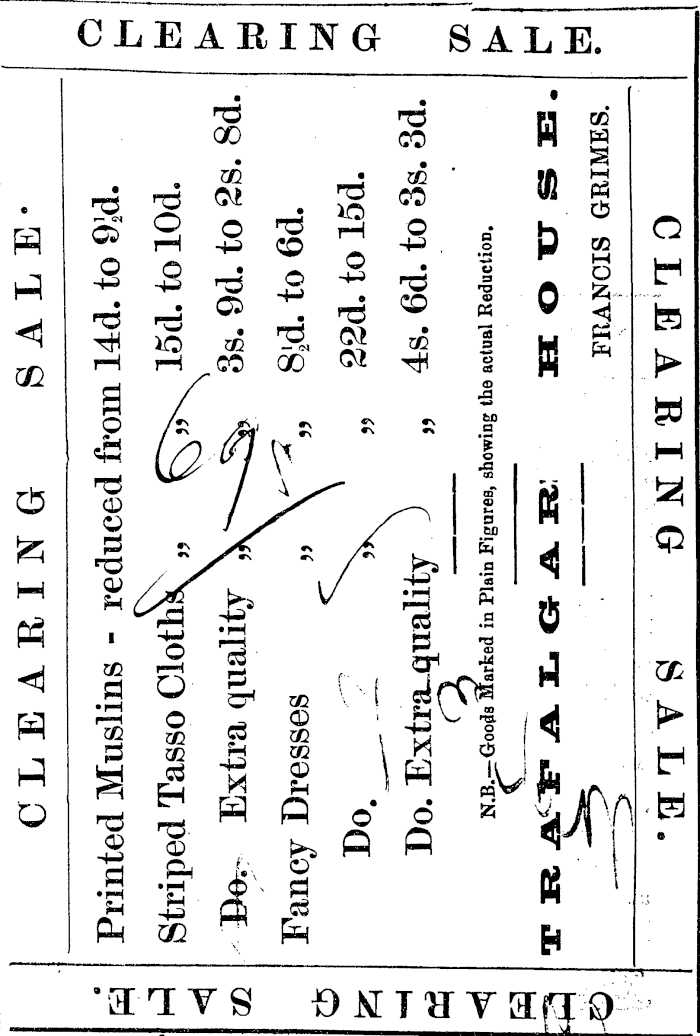 CLEARING SALE.
CLEARING SALE.
Printed Muslins - reduced from 14d. to 9½d.
Striped Tasso Cloths „ „ 15d. to 10d.
Do. Extra quality „ „ 3s. 9d. to 2s. 8d.
Fancy Dresses „ „ 8½d. to 6d.
Do. „ „ 22d. to 15d.
Do. Extra quality „ 4s. 6d. to 3s. 3d.
N.B.—Goods Marked in Plain Figures, showing the actual Reduction.
TRAFALGAR HOUSE.
FRANCIS GRIMES.
CLEARING SALE.
CLEARING SALE.